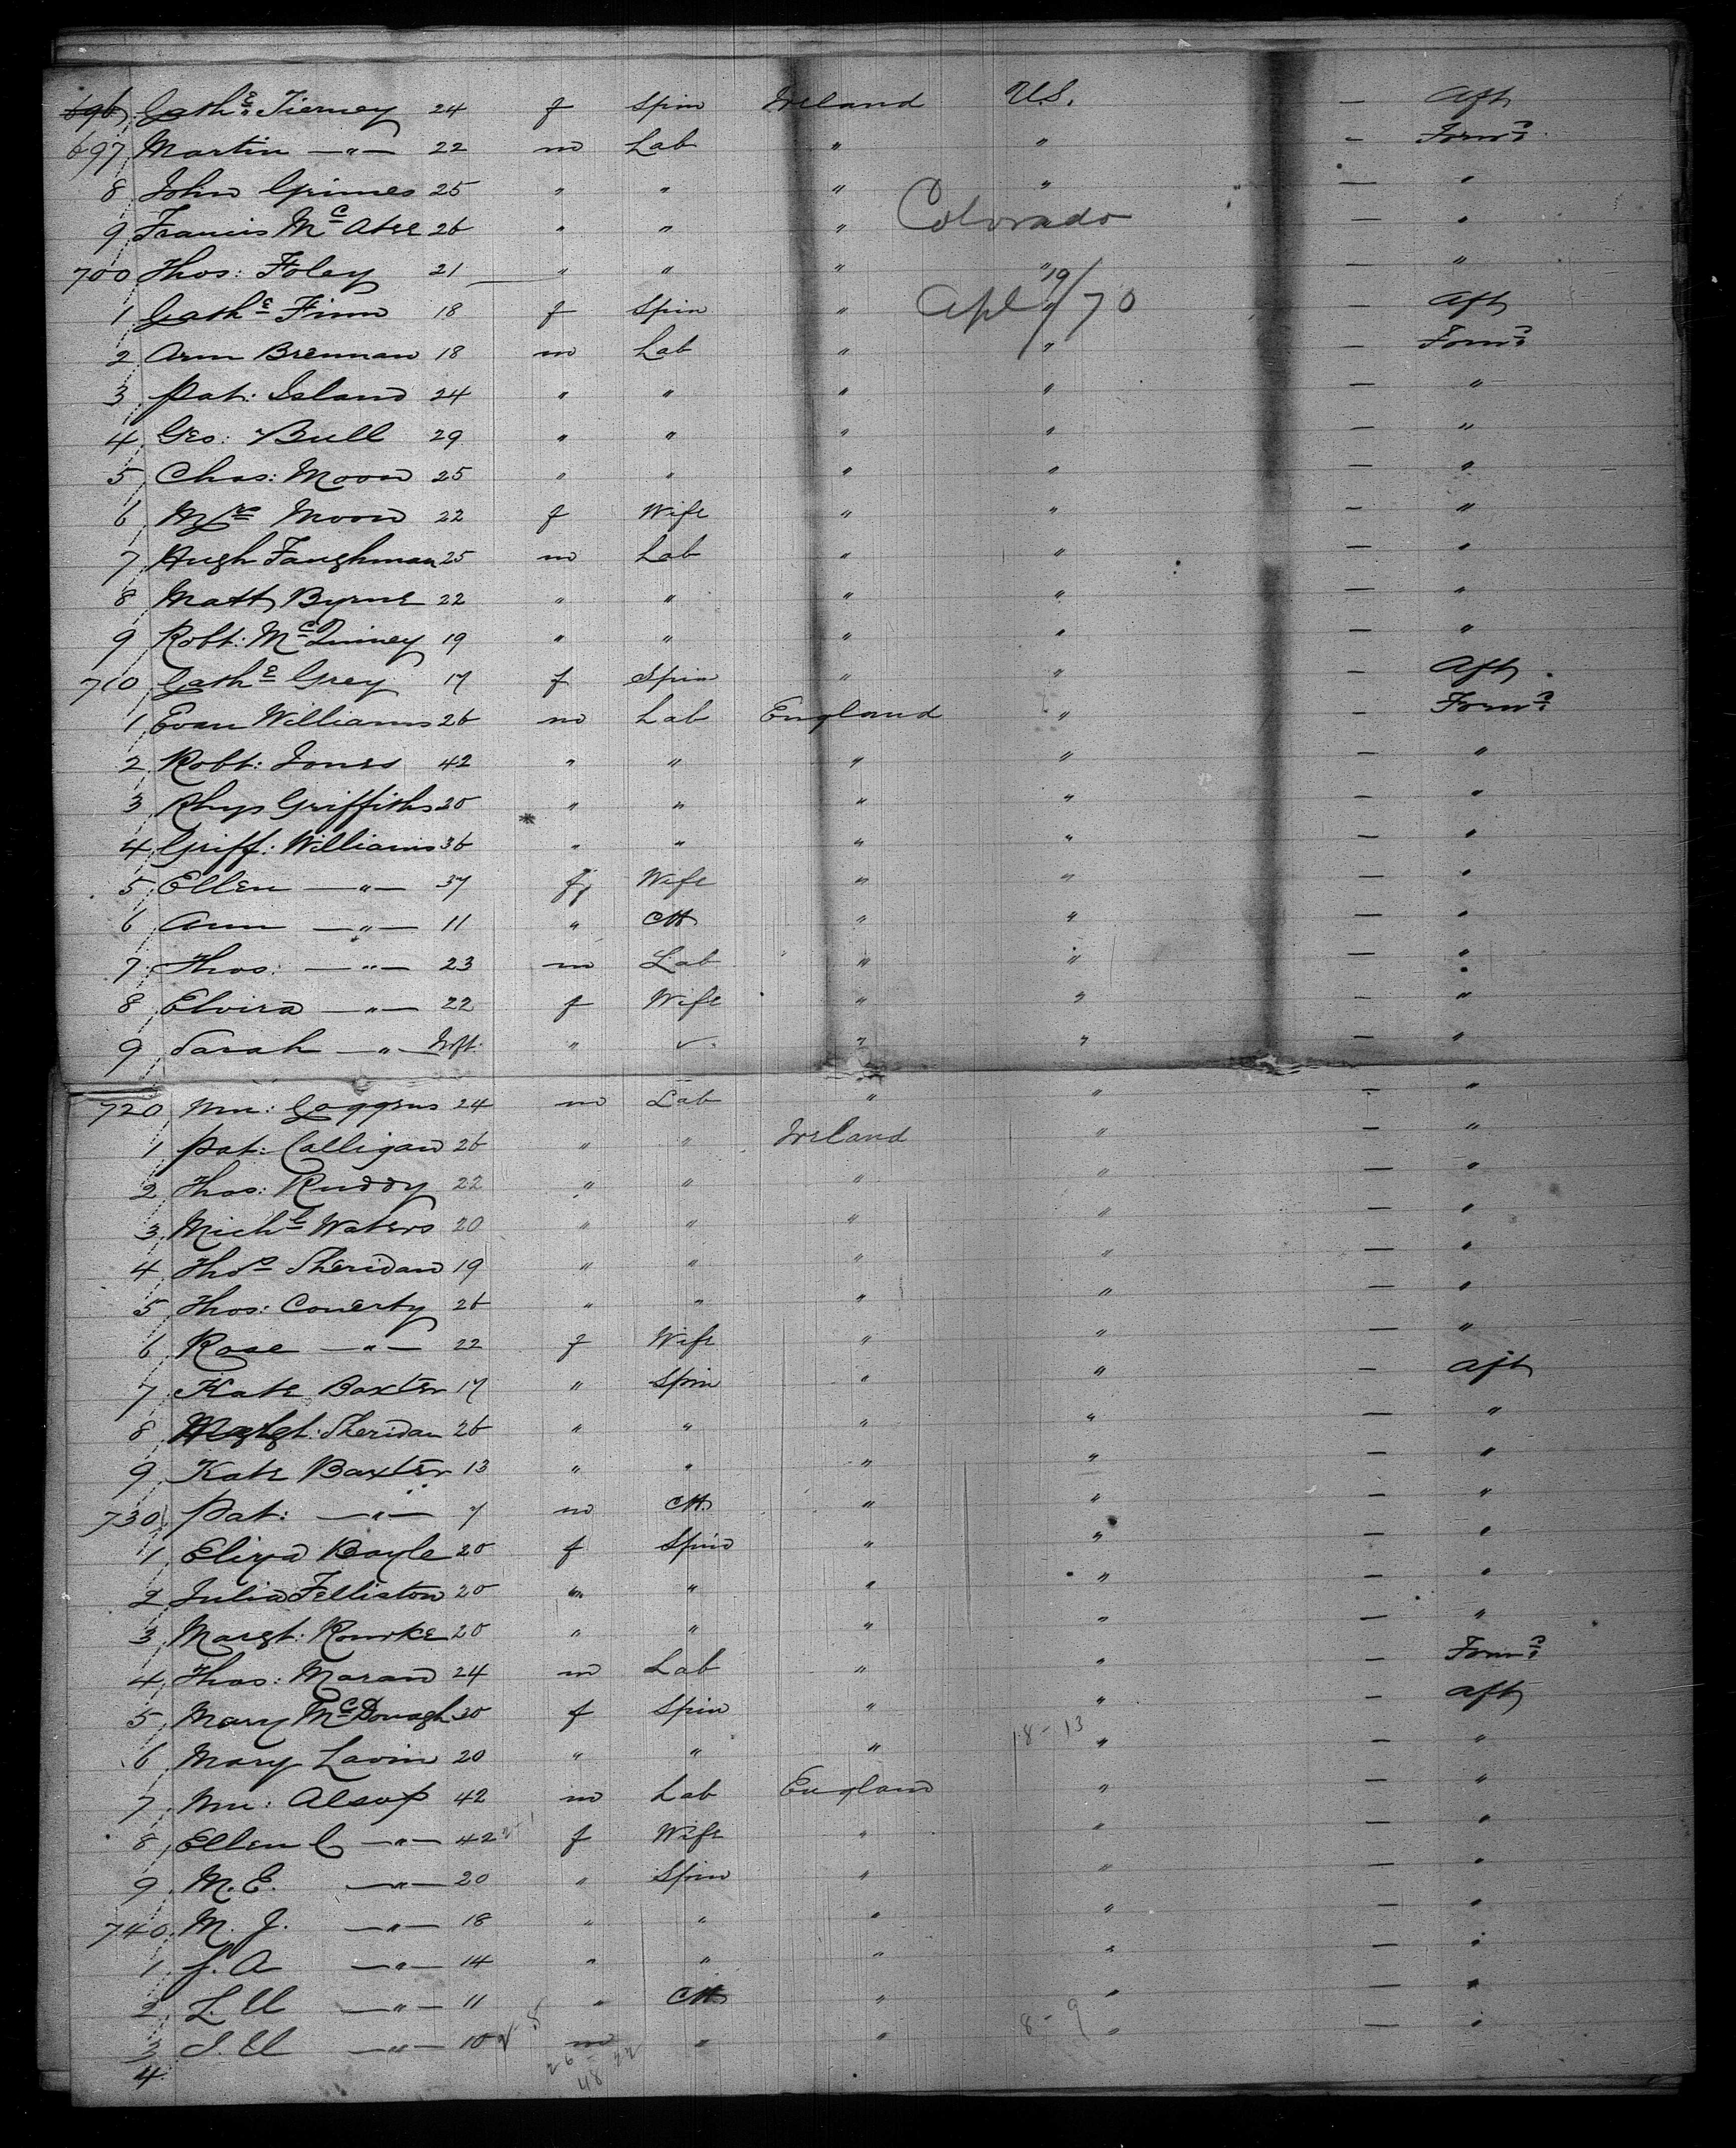 696 Cathe. Tierney 24 f Spin Ireland U.S. — Aft
697 Martin —"— 22 m Lab " " — Forwd.
8 John Grimes 25 " " " " — "
9 Francis Mc Atee 26 " " " Colorado — "
700 Thos: Foley 21 — " " " " — "
1 Cathe Finn 18 f Spin " Apl 19/70 " — Aft
2 Ann Brennan 18 m Lab " " — Forwd.
3 Pat: Island 24 " " " " — "
4 Geo: Bull 29 " " " " — "
5 Chas: Moon 25 " " " " — "
6 Mrs Moon 22 f Wife " " — "
7 Hugh Faughman 25 m Lab " " — "
8 Matt Byrne 22 " " " " — "
9 Robt: McQuiney 19 " " " " — "
710 Cathe Grey 17 f Spin " " — Aft
1 Evan Williams 26 m Lab England " — Forwd.
2 Robt: Jones 42 " " " " — "
3 Rhys Griffiths 20 " " " " — "
4 Griff: Williams 36 " " " " — "
5 Ellen —"— 37 f Wife " " — "
6 Ann —"— 11 " CH " " — "
7 Thos: —"— 23 m Lab " " — "
8 Elvira —"— 22 f Wife " " — "
9 Sarah —"— Inft. " ✓ " " — "
720 Wm: Goggins 24 m Lab " " — "
1 Pat: Calligan 26 " " Ireland " — "
2 Thos: Ruddy 22 " " " " — "
3 Michl Waters 20 " " " " — "
4 Thos Sheridan 19 " " " " — "
5 Thos: Conerty 26 " " " " — "
6 Rose —"— 22 f Wife " " — "
7 Kate Baxter 17 " Spin " " — Aft
8 Margt: Sheridan 26 " " " " — "
9 Kate Baxter 13 " " " " — "
730 Pat: —"— 7 m CH. " " — "
1 Eliza Boyle 20 f Spin " " — "
2 Julia Felliston 20 " " " " — "
3 Margt: Rourke 20 " " " " — "
4 Thos: Moran 24 m Lab " " — Forwd.
5 Mary McDonagh 20 f Spin " " — Aft
6 Mary Lavin 20 " " " 18-13 " — "
7 Wm: Alsop 42 m Lab England " — "
8 Ellen C —"— 42 f Wife " " — "
9 M. E. —"— 20 " Spin " " — "
740 M. J. —"— 18 " " " " — "
1 J. A —"— 14 " " " " — "
2 L. U —"— 11 " CH " " — "
3 J. U —"— 10 m " " 8-9 " — "
4 26 22
48